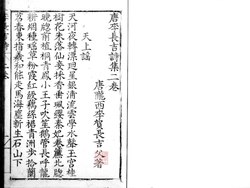 唐李長吉詩集二卷
唐隴西李賀長吉父著
天上謠
天河夜轉漂迴星銀浦流雲學水聲玉宮桂
樹花未落仙妾採香垂珮纓秦妃卷簾北窗
曉窗前植桐青鳳小王子吹笙鵝管長呼龍
耕煙種瑤草粉霞紅綬藕絲裙青洲步拾蘭
苕春東指羲和能走馬海塵新生石山下